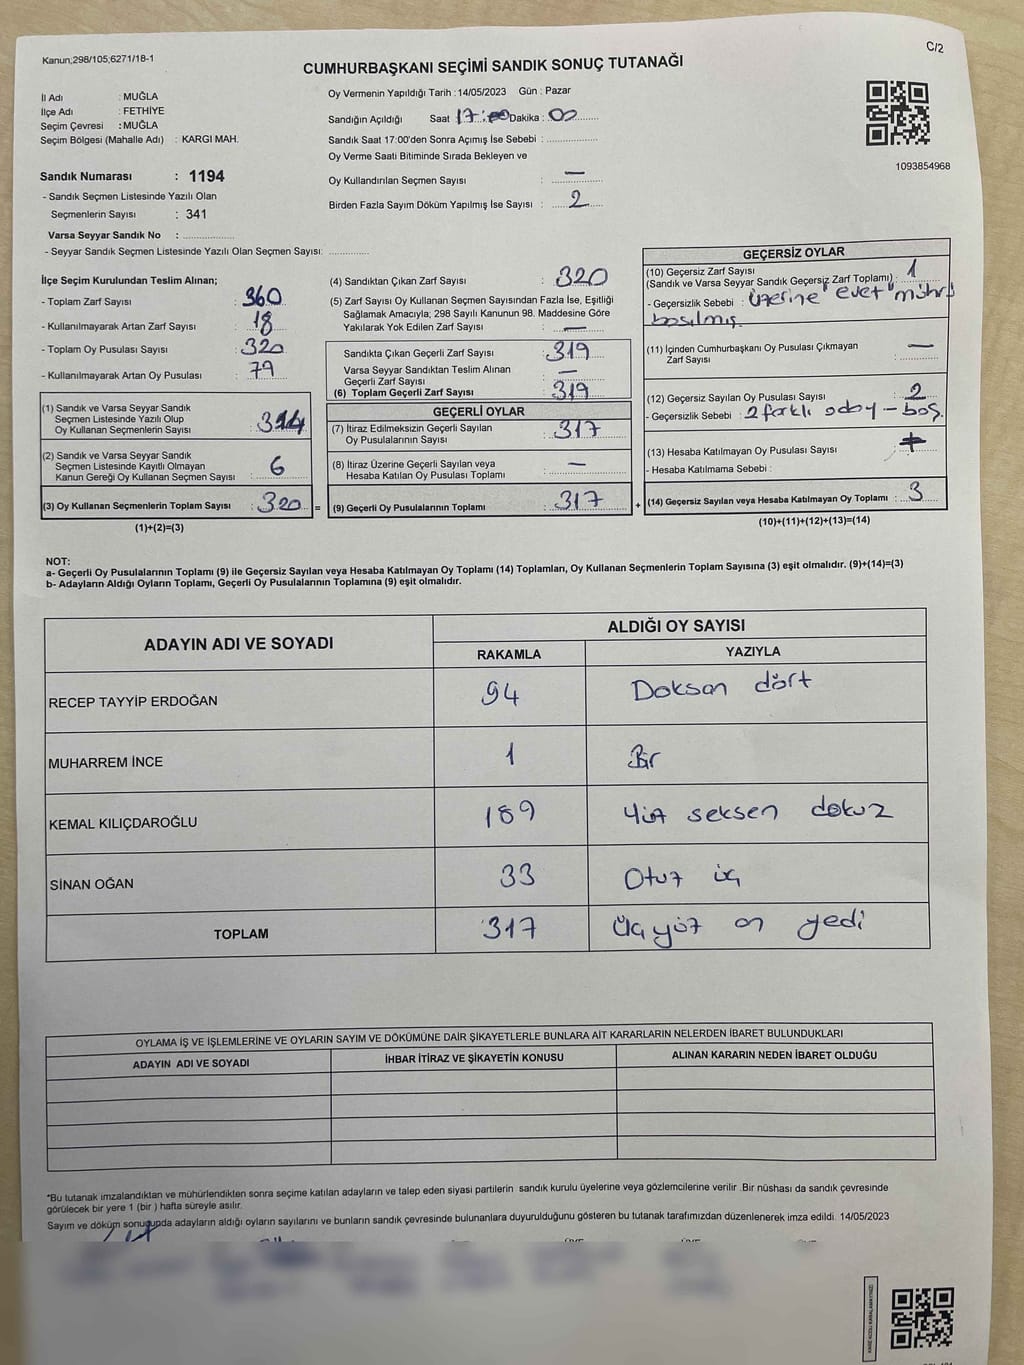 Kanun;298/105;6271/18-1
C/2
CUMHURBAŞKANI SEÇİMİ SANDIK SONUÇ TUTANAĞI
İl Adı : MUĞLA
İlçe Adı : FETHİYE
Seçim Çevresi : MUĞLA
Seçim Bölgesi (Mahalle Adı) : KARGI MAH.
Oy Vermenin Yapıldığı Tarih : 14/05/2023 Gün : Pazar
Sandığın Açıldığı Saat 17:00 Dakika : 00
Sandık Saat 17:00'den Sonra Açımış İse Sebebi :
Oy Verme Saati Bitiminde Sırada Bekleyen ve
Oy Kullandırılan Seçmen Sayısı : —
Birden Fazla Sayım Döküm Yapılmış İse Sayısı : 2
1093854968
Sandık Numarası : 1194
- Sandık Seçmen Listesinde Yazılı Olan
Seçmenlerin Sayısı : 341
Varsa Seyyar Sandık No :
- Seyyar Sandık Seçmen Listesinde Yazılı Olan Seçmen Sayısı:
İlçe Seçim Kurulundan Teslim Alınan;
- Toplam Zarf Sayısı : 360
- Kullanılmayarak Artan Zarf Sayısı : 18
- Toplam Oy Pusulası Sayısı : 320
- Kullanılmayarak Artan Oy Pusulası : 79
(1) Sandık ve Varsa Seyyar Sandık
Seçmen Listesinde Yazılı Olup
Oy Kullanan Seçmenlerin Sayısı : 314
(2) Sandık ve Varsa Seyyar Sandık
Seçmen Listesinde Kayıtlı Olmayan
Kanun Gereği Oy Kullanan Seçmen Sayısı : 6
(3) Oy Kullanan Seçmenlerin Toplam Sayısı : 320 =
(1)+(2)=(3)
(4) Sandıktan Çıkan Zarf Sayısı : 320
(5) Zarf Sayısı Oy Kullanan Seçmen Sayısından Fazla İse, Eşitliği
Sağlamak Amacıyla; 298 Sayılı Kanunun 98. Maddesine Göre
Yakılarak Yok Edilen Zarf Sayısı : —
Sandıkta Çıkan Geçerli Zarf Sayısı : 319
Varsa Seyyar Sandıktan Teslim Alınan
Geçerli Zarf Sayısı : —
(6) Toplam Geçerli Zarf Sayısı : 319
GEÇERLİ OYLAR
(7) İtiraz Edilmeksizin Geçerli Sayılan
Oy Pusulalarının Sayısı : 317
(8) İtiraz Üzerine Geçerli Sayılan veya
Hesaba Katılan Oy Pusulası Toplamı : —
(9) Geçerli Oy Pusulalarının Toplamı : 317 +
GEÇERSİZ OYLAR
(10) Geçersiz Zarf Sayısı
(Sandık ve Varsa Seyyar Sandık Geçersiz Zarf Toplamı) : 1
- Geçersizlik Sebebi : Üzerine "evet" mührü
basılmış.
(11) İçinden Cumhurbaşkanı Oy Pusulası Çıkmayan
Zarf Sayısı : —
(12) Geçersiz Sayılan Oy Pusulası Sayısı : 2
- Geçersizlik Sebebi : 2 farklı aday – boş.
(13) Hesaba Katılmayan Oy Pusulası Sayısı :
- Hesaba Katılmama Sebebi :
(14) Geçersiz Sayılan veya Hesaba Katılmayan Oy Toplamı : 3
(10)+(11)+(12)+(13)=(14)
NOT:
a- Geçerli Oy Pusulalarının Toplamı (9) ile Geçersiz Sayılan veya Hesaba Katılmayan Oy Toplamı (14) Toplamları, Oy Kullanan Seçmenlerin Toplam Sayısına (3) eşit olmalıdır. (9)+(14)=(3)
b- Adayların Aldığı Oyların Toplamı, Geçerli Oy Pusulalarının Toplamına (9) eşit olmalıdır.
ADAYIN ADI VE SOYADI
ALDIĞI OY SAYISI
RAKAMLA YAZIYLA
RECEP TAYYİP ERDOĞAN 94 Doksan dört
MUHARREM İNCE 1 Bir
KEMAL KILIÇDAROĞLU 189 Yüz seksen dokuz
SİNAN OĞAN 33 Otuz üç
TOPLAM 317 Üçyüz on yedi
OYLAMA İŞ VE İŞLEMLERİNE VE OYLARIN SAYIM VE DÖKÜMÜNE DAİR ŞİKAYETLERLE BUNLARA AİT KARARLARIN NELERDEN İBARET BULUNDUKLARI
ADAYIN ADI VE SOYADI İHBAR İTİRAZ VE ŞİKAYETİN KONUSU ALINAN KARARIN NEDEN İBARET OLDUĞU
*Bu tutanak imzalandıktan ve mühürlendikten sonra seçime katılan adayların ve talep eden siyasi partilerin sandık kurulu üyelerine veya gözlemcilerine verilir .Bir nüshası da sandık çevresinde
görülecek bir yere 1 (bir ) hafta süreyle asılır.
Sayım ve döküm sonucunda adayların aldığı oyların sayılarını ve bunların sandık çevresinde bulunanlara duyurulduğunu gösteren bu tutanak tarafımızdan düzenlenerek imza edildi. 14/05/2023